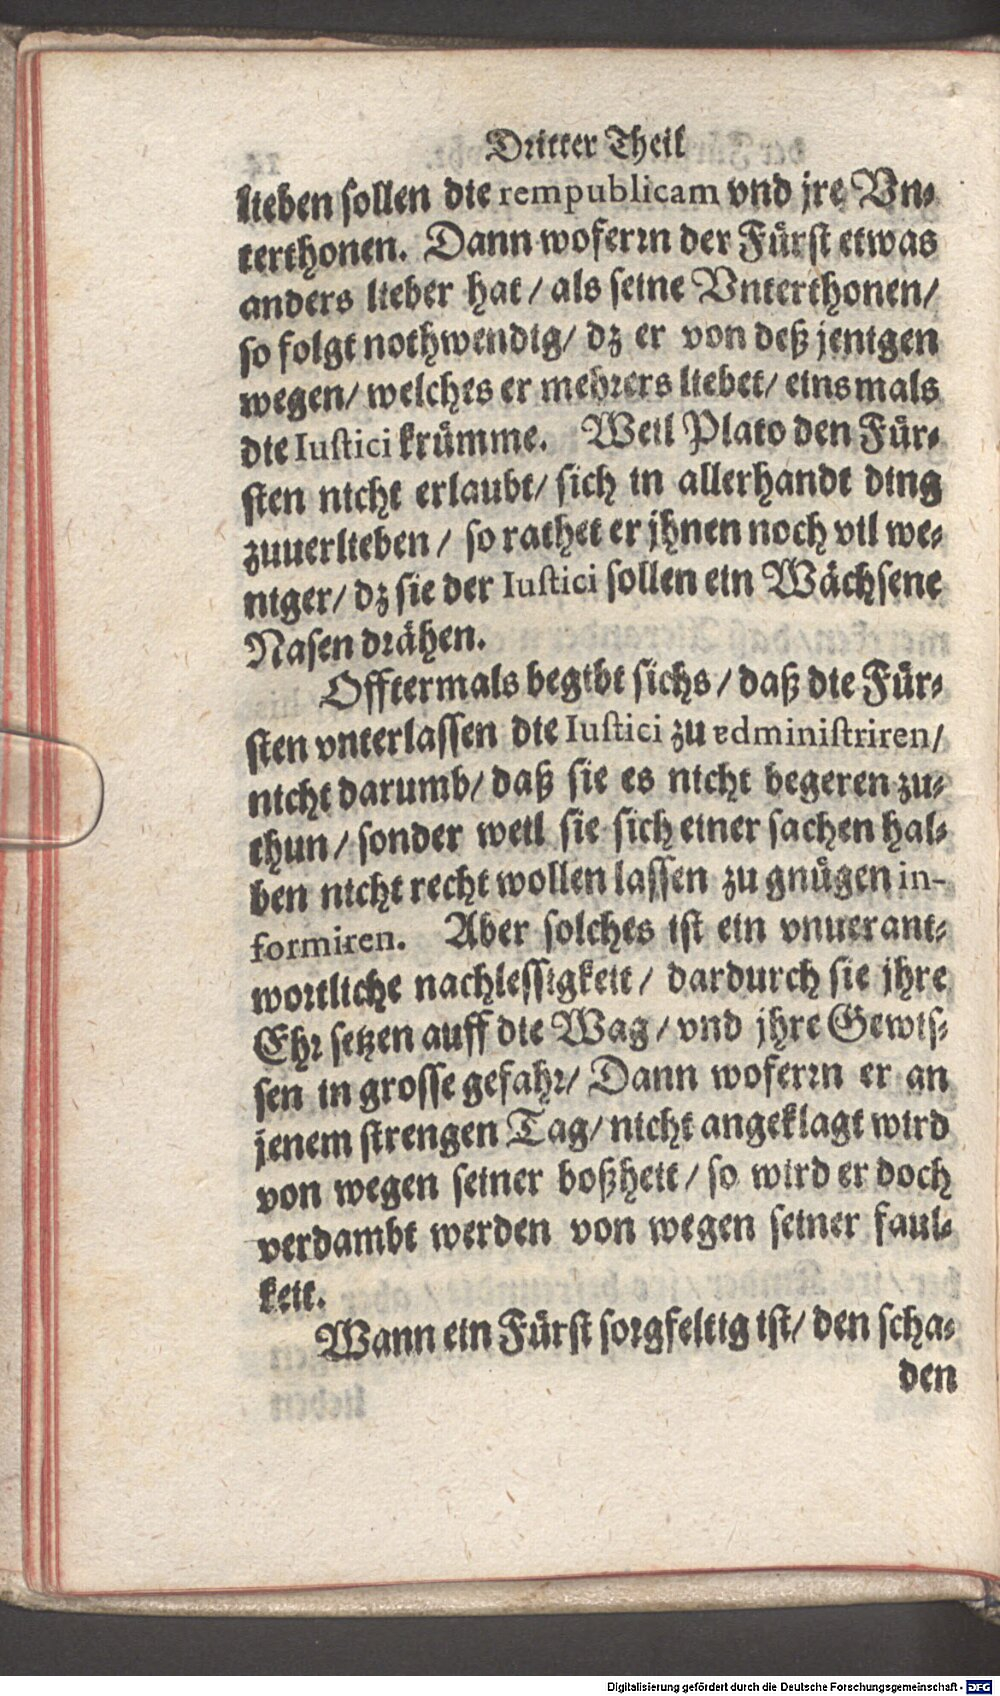 Dritter Theil
lieben sollen die rempublicam vnd jre Vn-
terthonen. Dann woferrn der Fürst etwas
anders lieber hat / als seine Vnterthonen /
so folgt nothwendig / dz er von deß jenigen
wegen / welches er mehrers liebet / einsmals
die Iustici krümme. Weil Plato den Für-
sten nicht erlaubt / sich in allerhandt ding
zuuerlieben / so rathet er jhnen noch vil we-
niger / dz sie der Iustici sollen ein Wächsene
Nasen drähen.
Offtermals begibt sichs / daß die Für-
sten vnterlassen die Iustici zu administriren /
nicht darumb / daß sie es nicht begeren zu-
thun / sonder weil sie sich einer sachen hal-
ben nicht recht wollen lassen zu gnügen in-
formiren. Aber solches ist ein vnuerant-
wortliche nachlessigkeit / dardurch sie jhre
Ehr setzen auff die Wag / vnd jhre Gewis-
sen in grosse gefahr / Dann woferrn er an
jenem strengen Tag / nicht angeklagt wird
von wegen seiner boßheit / so wird er doch
verdambt werden von wegen seiner faul-
keit.
Wann ein Fürst sorgfeltig ist / den scha-
den
Digitalisierung gefördert durch die Deutsche Forschungsgemeinschaft - DFG